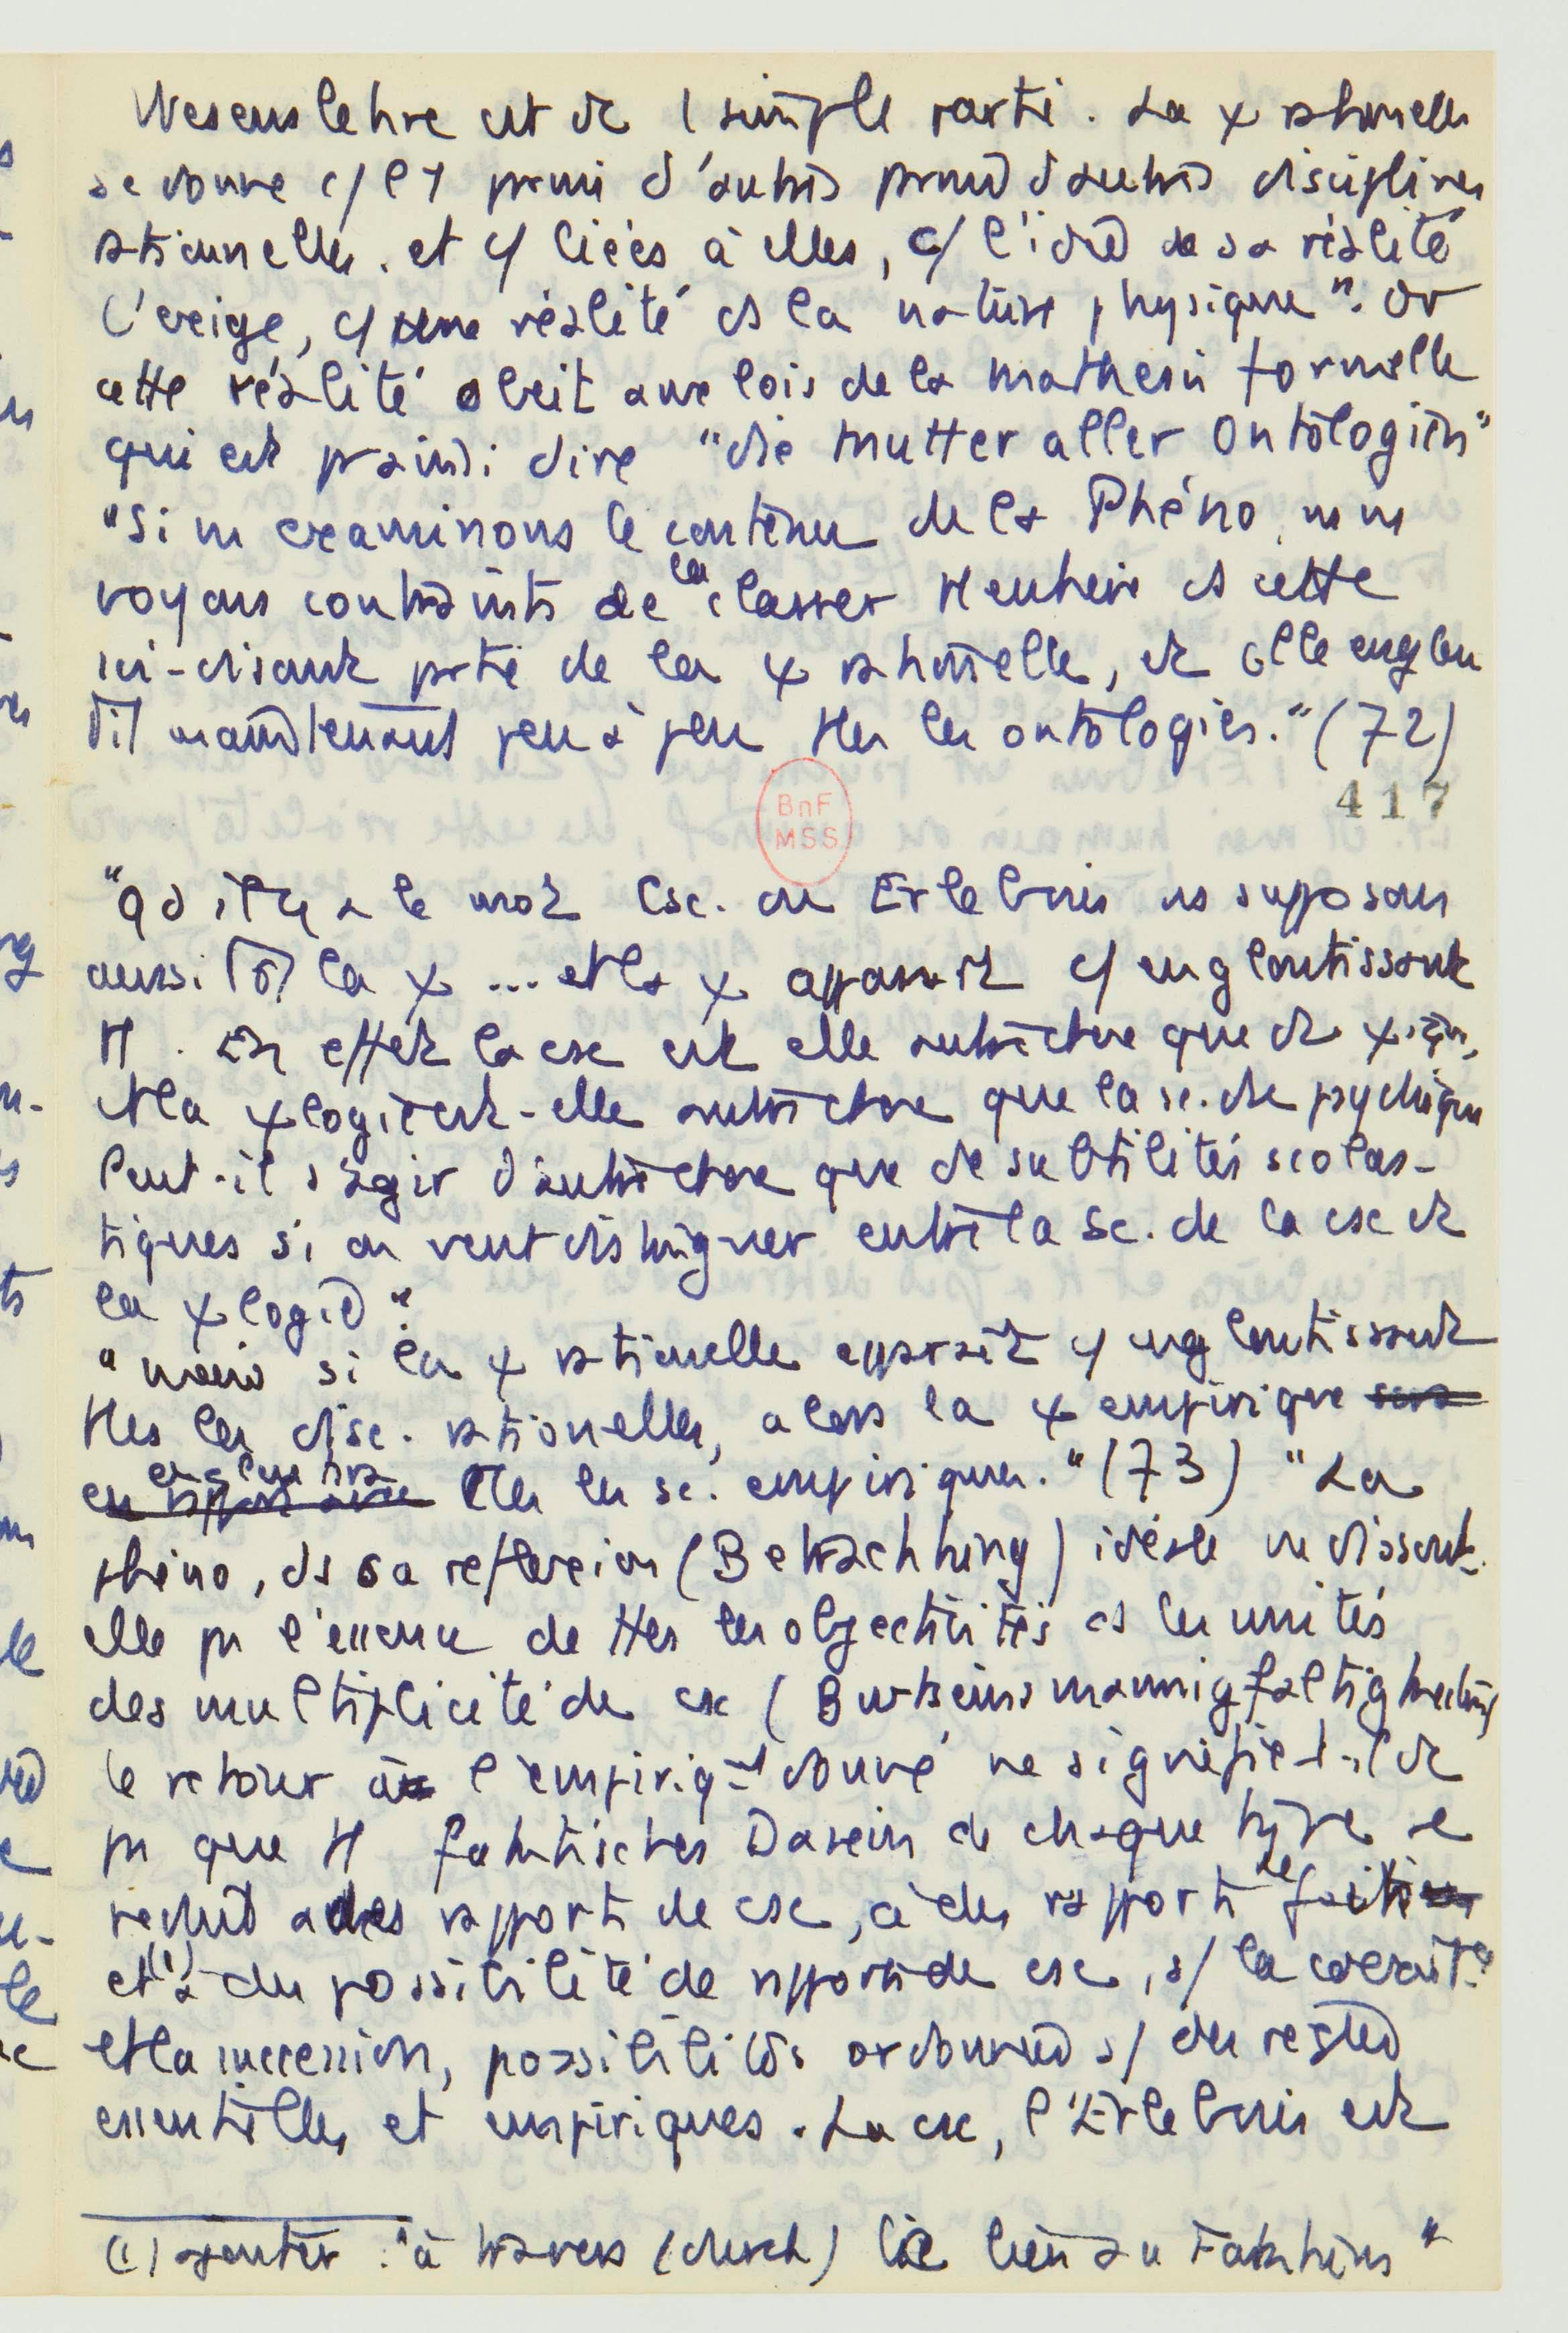 Wesenslehre est de 1 simple partie. La χ rationnelle
se donne c/ l'1 parmi d'autres parmi d'autres disciplines
rationnelles. et c/ liées à elles, c/ l'idée de sa réalité
l'exige, c/ une réalité ds la nature physique". Or
cette réalité obéit aux lois de la mathesis formelle
qui est pr ainsi dire "die Mutter aller Ontologien"
"Si ns examinons le contenu de la Phéno, ns ns
voyons contraints de la classer tt entière ds cette
soi-disant partie de la χ rationnelle, et elle englou
tit maintenant peu à peu ttes les ontologies." (72)
BnF
MSS
417
"qd il y a le mot Csc. ou Erlebnis ns supposons
aussitôt la χ ... et la χ apparaît c/ engloutissant
tt. En effet la csc est elle autre chose que du χique,
et la χlogie est-elle autre chose que la sc. du psychique
Peut-il s'agir d'autre chose que de subtilités scolas-
tiques si on veut distinguer entre la Sc. de la csc et
la χlogie".
"mais si la χ rationnelle apparaît c/ engloutissant
ttes les disc. rationnelles, alors la χ empirique
engloutira ttes les sc. empiriques." (73) "La
phéno, ds sa réflexion (Betrachtung) idéale ne dissout-
elle pas l'essence de ttes les objectivités ds les unités
des multiplicité de csc (Bewusstseinsmannigfaltigkeiten)
le retour à l'empiriqt donné ne signifie t-il de
pas que tt faktisches Dasein de chaque type se
réduit à des rapports de csc, à des rapports de fait
et (1) à des possibilité de rapports de csc, s/ la coexist.ce
et la succession, possibilités ordonnées s/ des règles
essentielles et empiriques. La csc, l'Erlebnis est
(1) ajouter : "à travers (durch) le lien au Faktum"